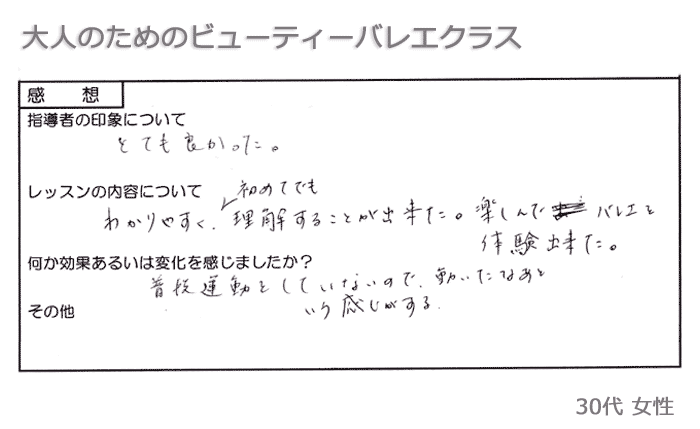 大人のためのビューティーバレエクラス
感　想
指導者の印象について
とても良かった。
レッスンの内容について
初めてでも
わかりやすく、理解することが出来た。楽しんで バレエを
体験出来た。
何か効果あるいは変化を感じましたか？
普段運動をしていないので、動いたなあと
いう感じがする。
その他
30代 女性